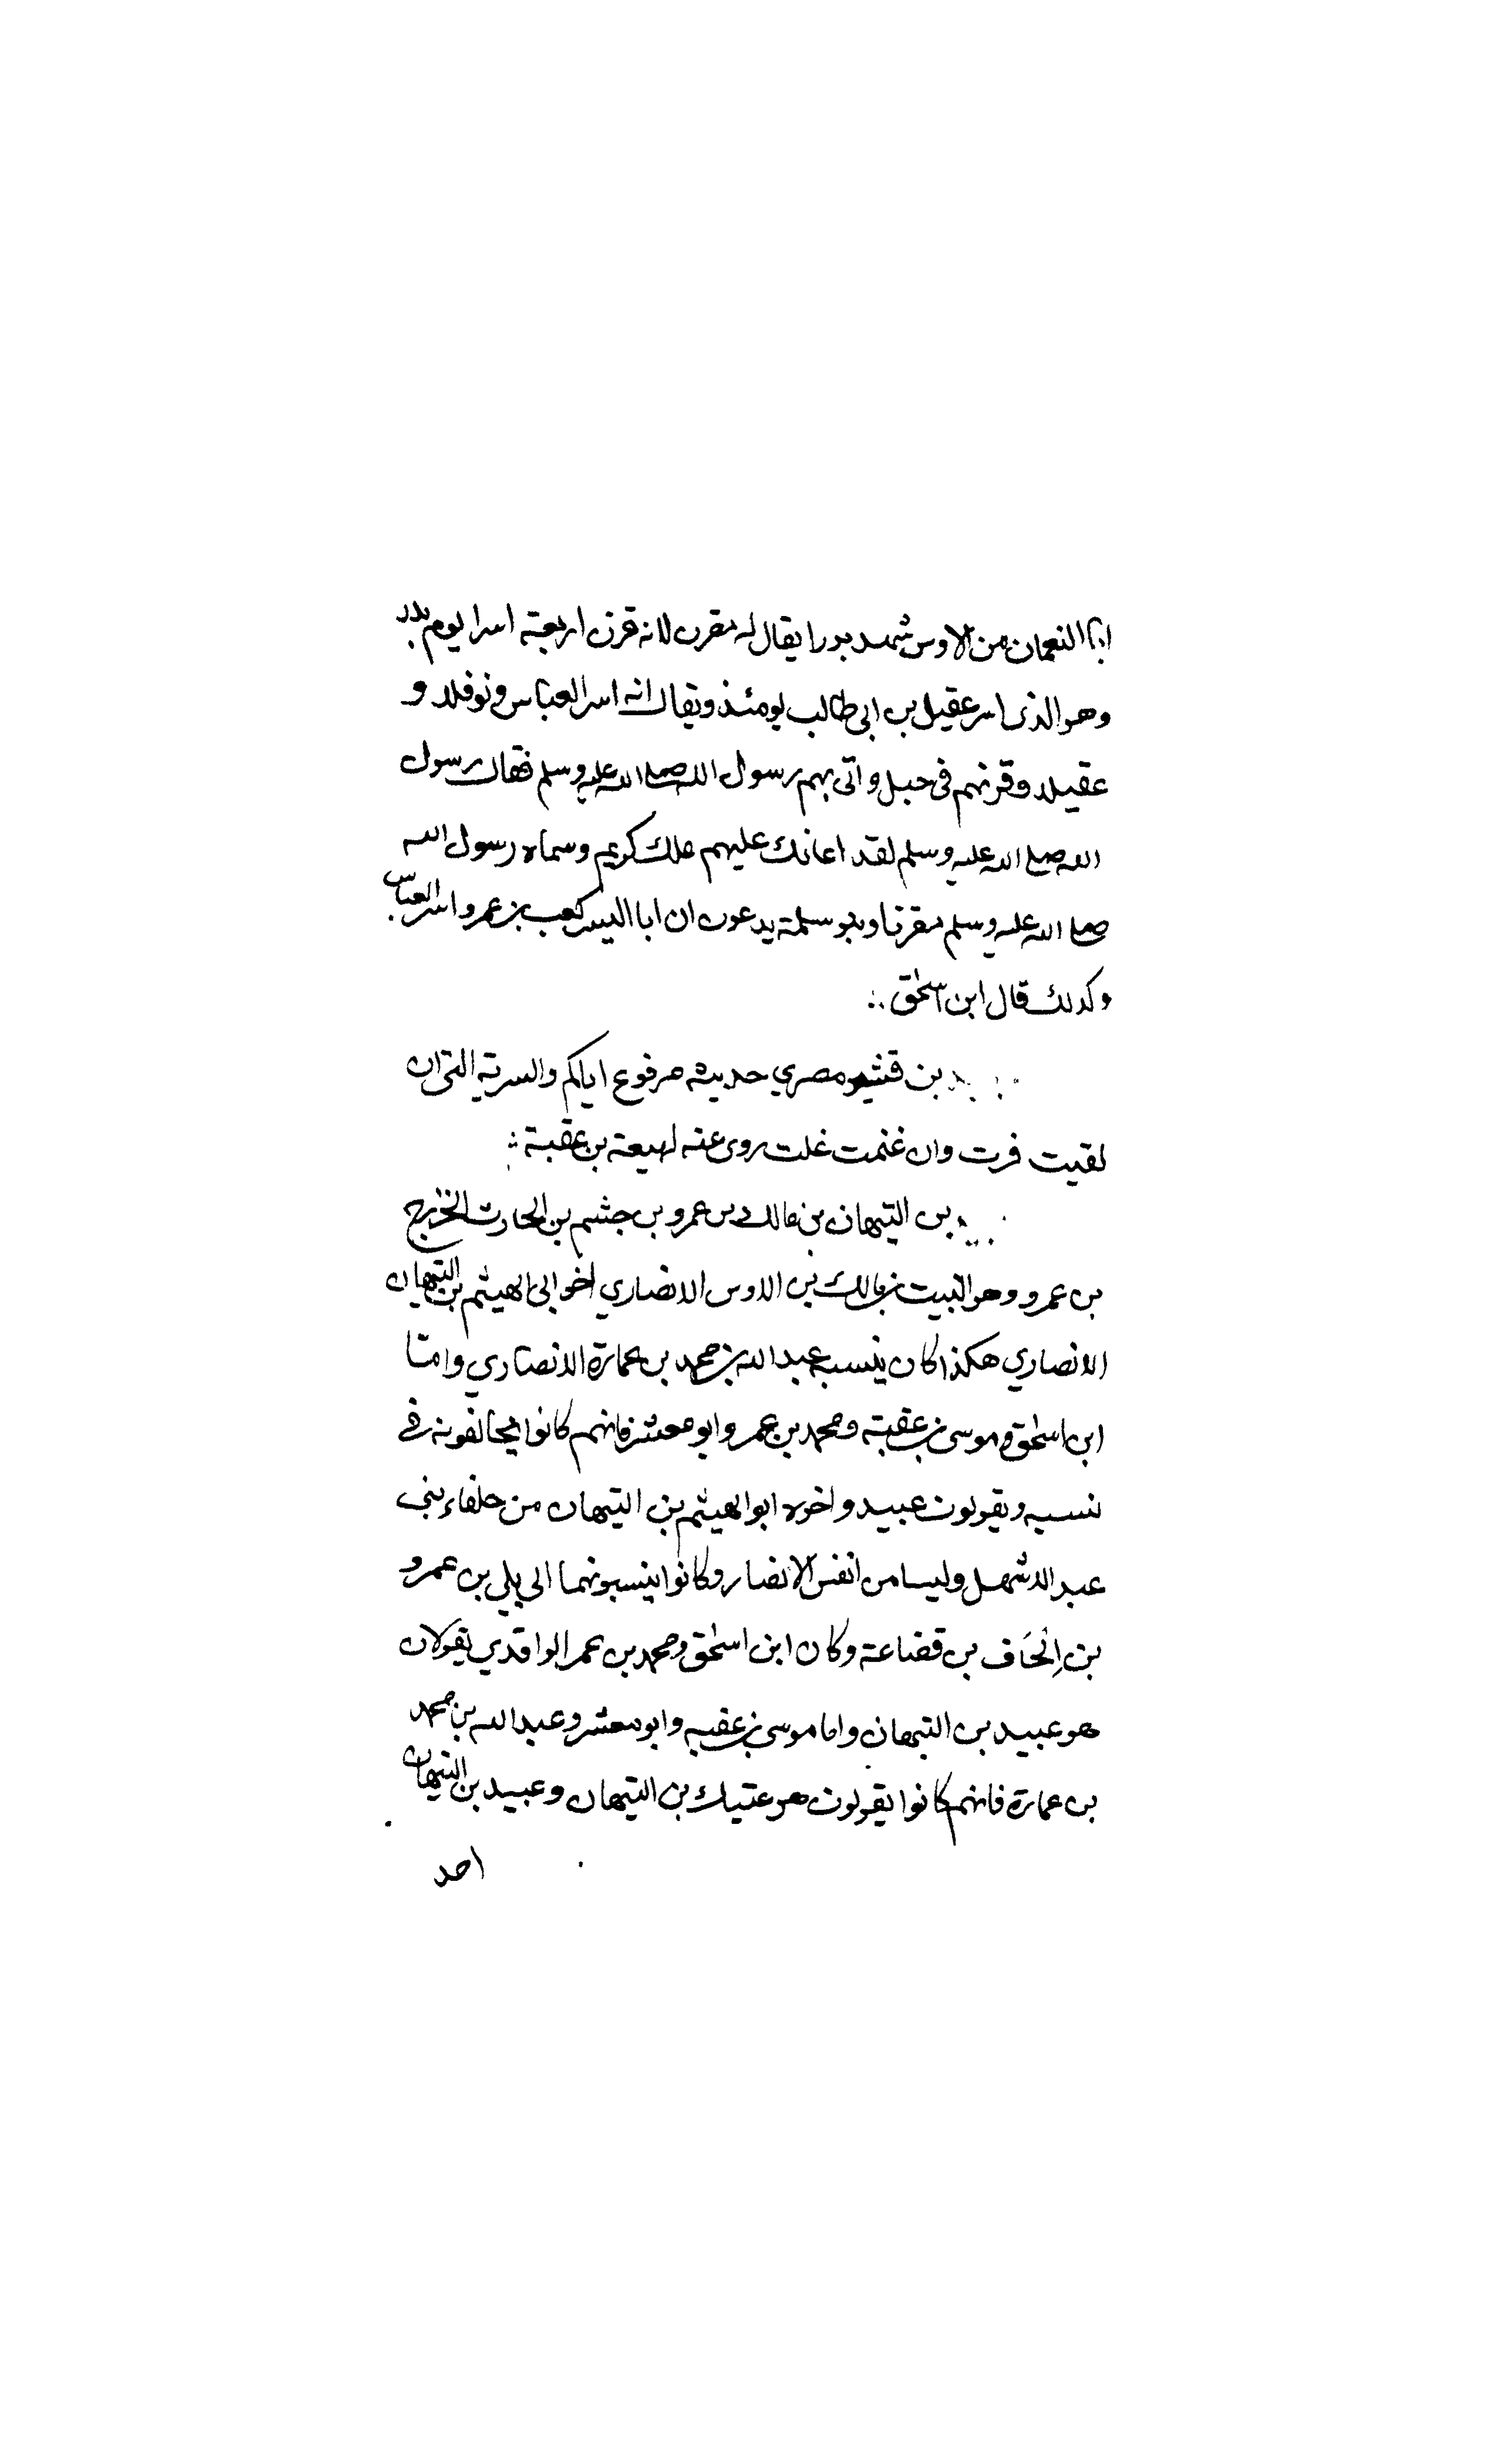 ابا النعمان من الاوس شهد بدرا يقال له مقرن لانه قرن اربعة اسرا يوم بدر
وهو الذى اسر عقيل بن ابى طالب يومئذ ويقال انه اسر العباس ونوفلا و
عقيلا وقرنهم فى حبل واتى بهم رسول الله صلى الله عليه وسلم فقال رسول
الله صلى الله عليه وسلم لقد اعانك عليهم ملك كريم وسماه رسول الله
صلى الله عليه وسلم مقرنا وبنو سلمة يدعون ان ابا اليسر كعب بن عمرو اسر العباس
وكذلك قال ابن اسحق
بن قشير مصري حديثه مرفوع اياكم والسرية التى ان
لقيت فرت وان غنمت غلت روى عنه لهيعة بن عقبة
بن التيهان بن مالك بن عمرو بن جشم بن الحارث الخزرج
بن عمرو وهو النبيت بن مالك بن الاوس الانصاري اخو ابى الهيثم بن التيهان
الانصاري هكذا كان ينسبه عبد الله بن محمد بن عمارة الانصاري وامّا
ابن اسحق وموسى بن عقبة ومحمد بن عمر وابو معشر فانهم كانوا يخالفونه فى
نسبه ويقولون عبيد واخوه ابو الهيثم بن التيهان من حلفاء بنى
عبد الاشهل وليسا من انفس الانصار وكانوا ينسبونهما الى بلي بن عمرو
بن اِلحَاف بن قضاعة وكان ابن اسحق ومحمد بن عمر الواقدي يقولان
هو عبيد بن التيهان واما موسى بن عقبه وابو معشر وعبد الله بن محمد
بن عمارة فانهم كانوا يقولون هو عتيك بن التيهان وعبيد بن التيهان
احد